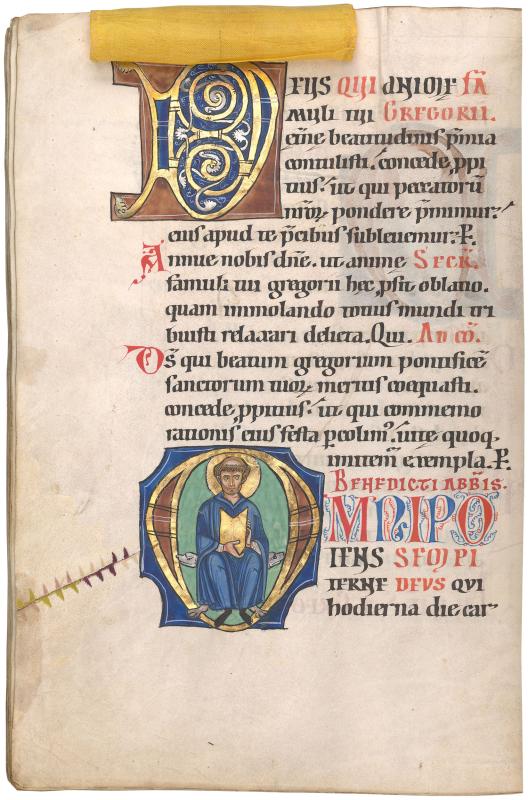 DEUS QUI ANIME FA
MULI TUI GREGORII.
et̄ne beatitudinis p̄mia
contulisti. concede ꝓpi
tius. ut qui peccatorū
nr̄oꝝ pondere p̄mimur.
eius apud te p̄cibus subleuemur. P.
Annue nobis dn̄e. ut anime SECR̄.
famuli tui gregorii hec ꝓsit oblatio.
quam immolando totius mundi tri
buisti relaxari delicta. Qui. AD CŌ.
Ds̄ qui beatum gregorium pontificē
sanctorum tuoꝝ meritis coequasti.
concede ꝓpitius. ut qui commemo
rationis eius festa ꝑcolim᷒. uite quoq.
imitem᷒ exempla. P.
BENEDICTI ABBĪS.
OMNIPO
TENS SEMPI
TERNE DEUS QUI
hodierna die car